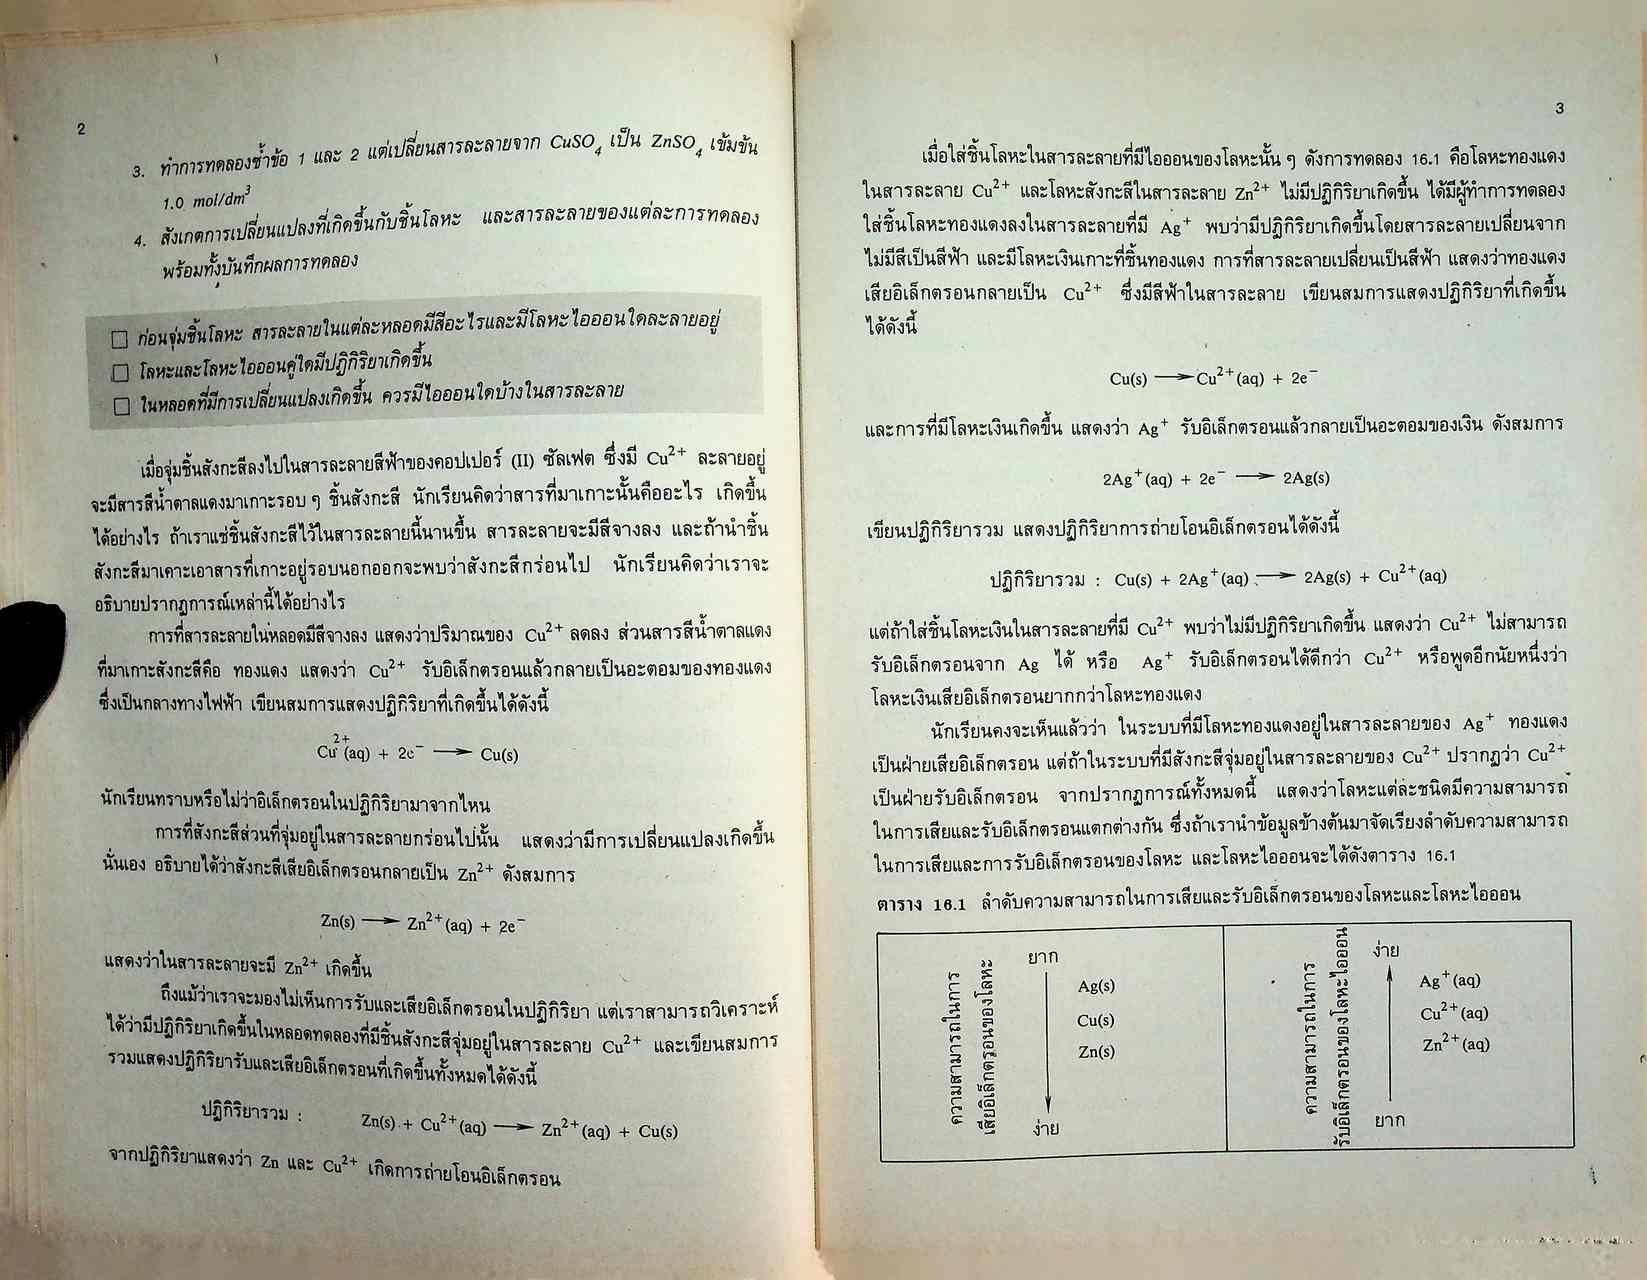 2
3. ทำการทดลองซ้ำข้อ 1 และ 2 แต่เปลี่ยนสารละลายจาก CuSO₄ เป็น ZnSO₄ เข้มข้น
1.0 mol/dm³
4. สังเกตการเปลี่ยนแปลงที่เกิดขึ้นกับชิ้นโลหะ และสารละลายของแต่ละการทดลอง
พร้อมทั้งบันทึกผลการทดลอง
☐ ก่อนจุ่มชิ้นโลหะ สารละลายในแต่ละหลอดมีสีอะไรและมีโลหะไอออนใดละลายอยู่
☐ โลหะและโลหะไอออนคู่ใดมีปฏิกิริยาเกิดขึ้น
☐ ในหลอดที่มีการเปลี่ยนแปลงเกิดขึ้น ควรมีไอออนใดบ้างในสารละลาย
เมื่อจุ่มชิ้นสังกะสีลงไปในสารละลายสีฟ้าของคอปเปอร์ (II) ซัลเฟต ซึ่งมี Cu²⁺ ละลายอยู่
จะมีสารสีน้ำตาลแดงมาเกาะรอบ ๆ ชิ้นสังกะสี นักเรียนคิดว่าสารที่มาเกาะนั้นคืออะไร เกิดขึ้น
ได้อย่างไร ถ้าเราแช่ชิ้นสังกะสีไว้ในสารละลายนี้นานขึ้น สารละลายจะมีสีจางลง และถ้านำชิ้น
สังกะสีมาเคาะเอาสารที่เกาะอยู่รอบนอกออกจะพบว่าสังกะสีกร่อนไป นักเรียนคิดว่าเราจะ
อธิบายปรากฏการณ์เหล่านี้ได้อย่างไร
การที่สารละลายในหลอดมีสีจางลง แสดงว่าปริมาณของ Cu²⁺ ลดลง ส่วนสารสีน้ำตาลแดง
ที่มาเกาะสังกะสีคือ ทองแดง แสดงว่า Cu²⁺ รับอิเล็กตรอนแล้วกลายเป็นอะตอมของทองแดง
ซึ่งเป็นกลางทางไฟฟ้า เขียนสมการแสดงปฏิกิริยาที่เกิดขึ้นได้ดังนี้
Cu²⁺(aq) + 2e⁻ ⟶ Cu(s)
นักเรียนทราบหรือไม่ว่าอิเล็กตรอนในปฏิกิริยามาจากไหน
การที่สังกะสีส่วนที่จุ่มอยู่ในสารละลายกร่อนไปนั้น แสดงว่ามีการเปลี่ยนแปลงเกิดขึ้น
นั่นเอง อธิบายได้ว่าสังกะสีเสียอิเล็กตรอนกลายเป็น Zn²⁺ ดังสมการ
Zn(s) ⟶ Zn²⁺(aq) + 2e⁻
แสดงว่าในสารละลายจะมี Zn²⁺ เกิดขึ้น
ถึงแม้ว่าเราจะมองไม่เห็นการรับและเสียอิเล็กตรอนในปฏิกิริยา แต่เราสามารถวิเคราะห์
ได้ว่ามีปฏิกิริยาเกิดขึ้นในหลอดทดลองที่มีชิ้นสังกะสีจุ่มอยู่ในสารละลาย Cu²⁺ และเขียนสมการ
รวมแสดงปฏิกิริยารับและเสียอิเล็กตรอนที่เกิดขึ้นทั้งหมดได้ดังนี้
ปฏิกิริยารวม : Zn(s) + Cu²⁺(aq) ⟶ Zn²⁺(aq) + Cu(s)
จากปฏิกิริยาแสดงว่า Zn และ Cu²⁺ เกิดการถ่ายโอนอิเล็กตรอน
3
เมื่อใส่ชิ้นโลหะในสารละลายที่มีไอออนของโลหะนั้น ๆ ดังการทดลอง 16.1 คือโลหะทองแดง
ในสารละลาย Cu²⁺ และโลหะสังกะสีในสารละลาย Zn²⁺ ไม่มีปฏิกิริยาเกิดขึ้น ได้มีผู้ทำการทดลอง
ใส่ชิ้นโลหะทองแดงลงในสารละลายที่มี Ag⁺ พบว่ามีปฏิกิริยาเกิดขึ้นโดยสารละลายเปลี่ยนจาก
ไม่มีสีเป็นสีฟ้า และมีโลหะเงินเกาะที่ชิ้นทองแดง การที่สารละลายเปลี่ยนเป็นสีฟ้า แสดงว่าทองแดง
เสียอิเล็กตรอนกลายเป็น Cu²⁺ ซึ่งมีสีฟ้าในสารละลาย เขียนสมการแสดงปฏิกิริยาที่เกิดขึ้น
ได้ดังนี้
Cu(s) ⟶ Cu²⁺(aq) + 2e⁻
และการที่มีโลหะเงินเกิดขึ้น แสดงว่า Ag⁺ รับอิเล็กตรอนแล้วกลายเป็นอะตอมของเงิน ดังสมการ
2Ag⁺(aq) + 2e⁻ ⟶ 2Ag(s)
เขียนปฏิกิริยารวม แสดงปฏิกิริยาการถ่ายโอนอิเล็กตรอนได้ดังนี้
ปฏิกิริยารวม : Cu(s) + 2Ag⁺(aq) ⟶ 2Ag(s) + Cu²⁺(aq)
แต่ถ้าใส่ชิ้นโลหะเงินในสารละลายที่มี Cu²⁺ พบว่าไม่มีปฏิกิริยาเกิดขึ้น แสดงว่า Cu²⁺ ไม่สามารถ
รับอิเล็กตรอนจาก Ag ได้ หรือ Ag⁺ รับอิเล็กตรอนได้ดีกว่า Cu²⁺ หรือพูดอีกนัยหนึ่งว่า
โลหะเงินเสียอิเล็กตรอนยากกว่าโลหะทองแดง
นักเรียนคงจะเห็นแล้วว่า ในระบบที่มีโลหะทองแดงอยู่ในสารละลายของ Ag⁺ ทองแดง
เป็นฝ่ายเสียอิเล็กตรอน แต่ถ้าในระบบที่มีสังกะสีจุ่มอยู่ในสารละลายของ Cu²⁺ ปรากฏว่า Cu²⁺
เป็นฝ่ายรับอิเล็กตรอน จากปรากฏการณ์ทั้งหมดนี้ แสดงว่าโลหะแต่ละชนิดมีความสามารถ
ในการเสียและรับอิเล็กตรอนแตกต่างกัน ซึ่งถ้าเรานำข้อมูลข้างต้นมาจัดเรียงลำดับความสามารถ
ในการเสียและการรับอิเล็กตรอนของโลหะ และโลหะไอออนจะได้ดังตาราง 16.1
ตาราง 16.1 ลำดับความสามารถในการเสียและรับอิเล็กตรอนของโลหะและโลหะไอออน
ความสามารถในการ
เสียอิเล็กตรอนของโลหะ
ยาก
Ag(s)
Cu(s)
Zn(s)
ง่าย
ความสามารถในการ
รับอิเล็กตรอนของโลหะไอออน
ง่าย
Ag⁺(aq)
Cu²⁺(aq)
Zn²⁺(aq)
ยาก